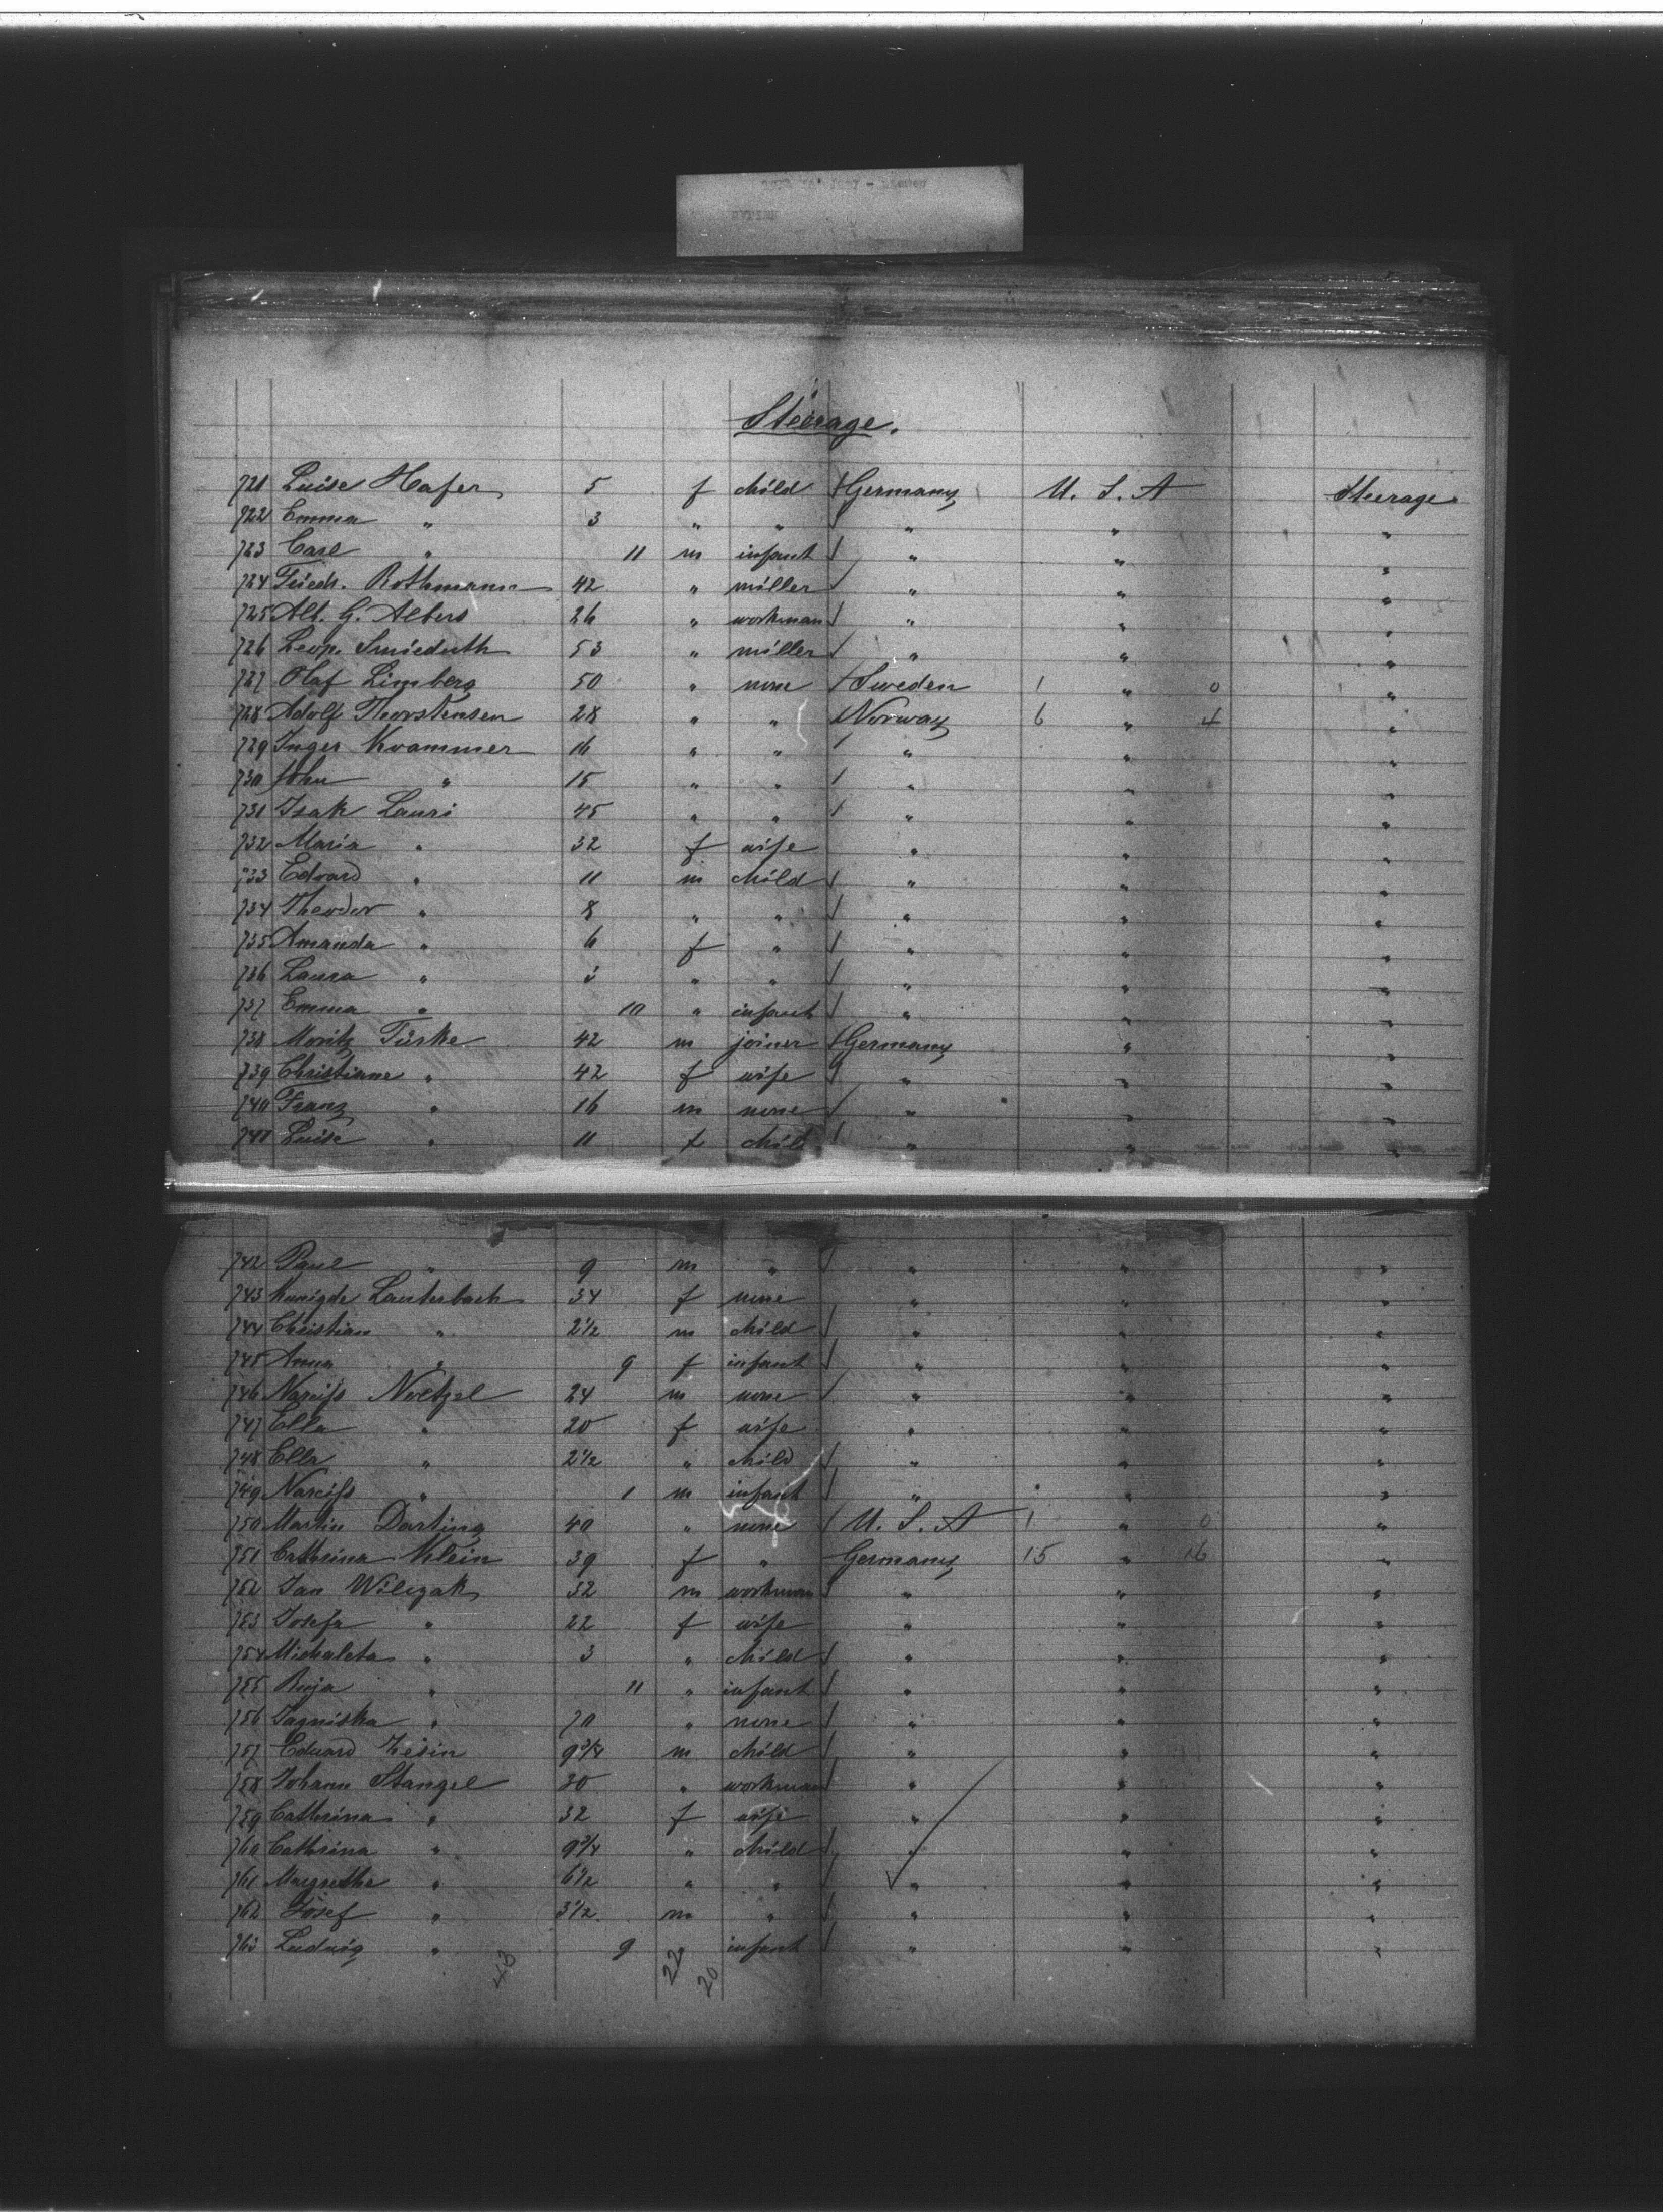 Steerage.
721 Luise Hafer 5 f child Germany U. S. A Steerage
722 Emma " 3 " " " " "
723 Carl " 11 m infant " " "
724 Friedr. Rothmann 42 " miller " " "
725 Alb. G. Albers 26 " workman " " "
726 Leop. 53 " miller " " "
727 Olaf Limberg 50 " none Sweden 1 " 0 "
728 Adolf Thorstensen 28 " " Norway 6 " 4 "
729 Inger Kvammer 16 " " " " "
730 John " 15 " " " " "
731 Isak Lauri 45 " " " " "
732 Maria " 32 f wife " " "
733 Edvard " 11 m child " " "
734 Theodor " 8 " " " " "
735 Amanda " 6 f " " " "
736 Laura " 3 " " " " "
737 Emma " 10 " infant " " "
738 Moritz Türke 42 m joiner Germany " "
739 Christiane " 42 f wife " " "
740 Franz " 16 m none " " "
741 Luise " 11 f child " " "
742 Paul " 9 m " " " "
743 Kunigde Lauterbach 34 f none " " "
744 Christian " 2 1/2 m child " " "
745 Anna " 9 f infant " " "
746 Narciss Noetzel 24 m none " " "
747 Ella " 20 f wife " " "
748 Ella " 2 1/2 " child " " "
749 Narciss " 1 m infant " " "
750 Martin Darting 40 " none U. S. A 1 " 0 "
751 Cathrina Klein 39 f " Germany 15 " 16 "
752 Jan Wilczak 32 m workman " " "
753 Josefa " 22 f wife " " "
754 Michaleta " 3 " child " " "
755 Ruja " 11 " infant " " "
756 Jagniska " 70 " none " " "
757 Eduard 9 3/4 m child " " "
758 Johann Stangel 30 " workman " " "
759 Cathrina " 32 f wife " " "
760 Cathrina " 9 3/4 " child " " "
761 Magrethe " 6 1/2 " " " " "
762 Josef " 3 1/2 m " " " "
763 Ludwig " 9 " infant " " "
43 22 20